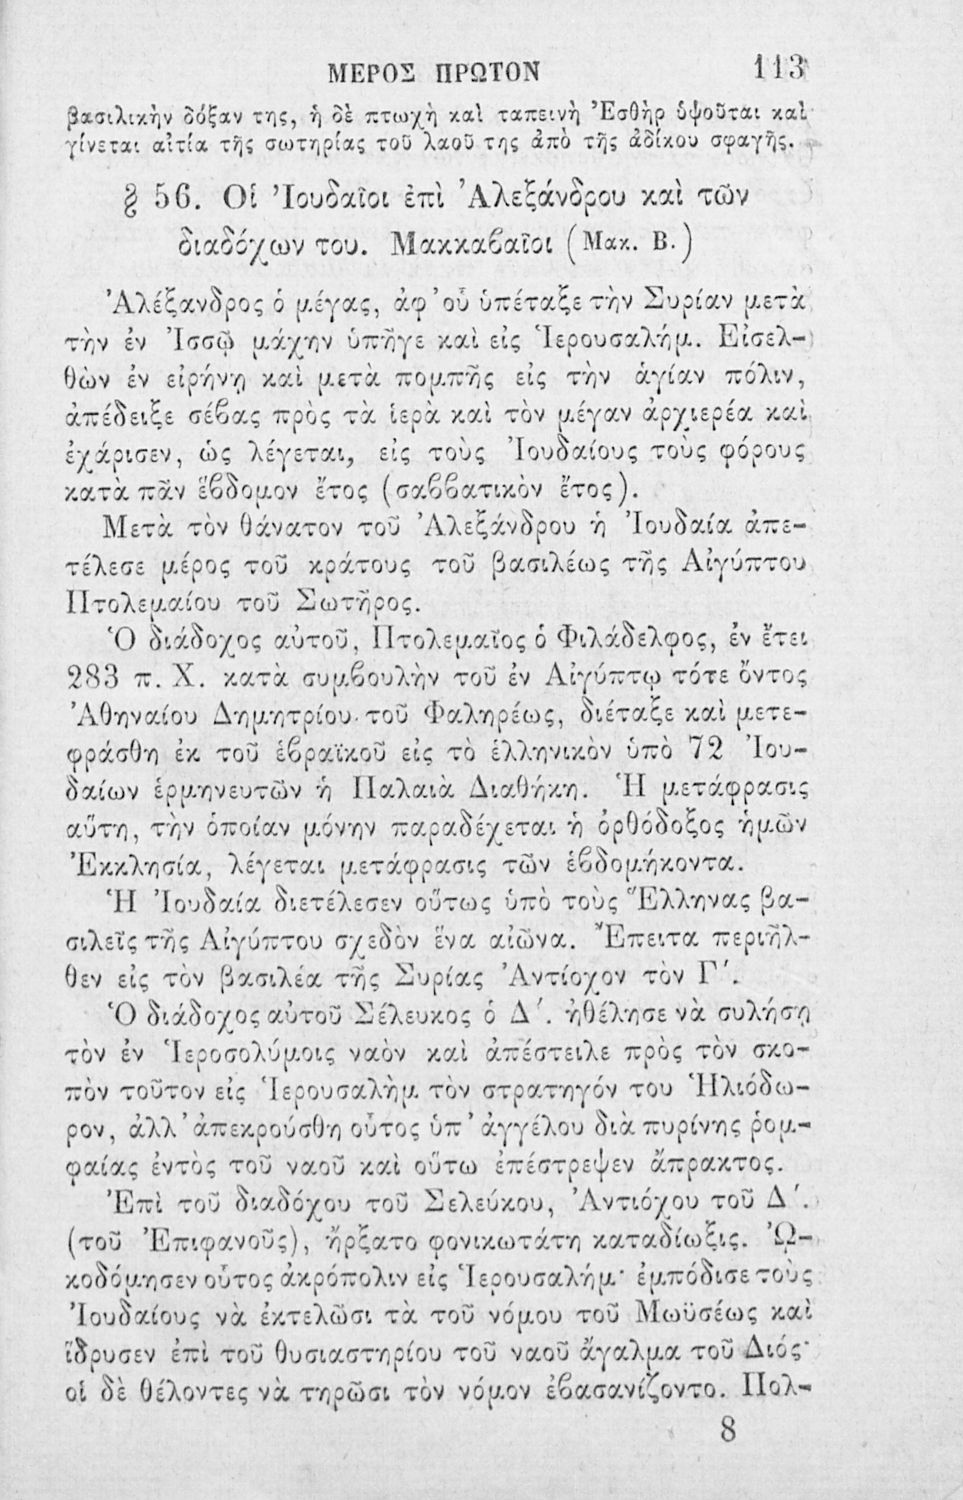 ΜΕΡΟΣ ΠΡΩΤΟΝ 113
βασιλικὴν δόξαν της, ἡ δὲ πτωχὴ καὶ ταπεινὴ Ἐσθὴρ ὑψοῦται καὶ
γίνεται αἰτία τῆς σωτηρίας τοῦ λαοῦ της ἀπὸ τῆς ἀδίκου σφαγῆς.
§ 56. Οἱ Ἰουδαῖοι ἐπὶ Ἀλεξάνδρου καὶ τῶν
διαδόχων του. Μακκαβαῖοι (Μακ. Β.)
Ἀλέξανδρος ὁ μέγας, ἀφ’ οὗ ὑπέταξε τὴν Συρίαν μετὰ
τὴν ἐν Ἰσσῷ μάχην ὑπῆγε καὶ εἰς Ἱερουσαλήμ. Εἰσελ-
θὼν ἐν εἰρήνῃ καὶ μετὰ πομπῆς εἰς τὴν ἁγίαν πόλιν,
ἀπέδειξε σέβας πρὸς τὰ ἱερὰ καὶ τὸν μέγαν ἀρχιερέα καὶ
ἐχάρισεν, ὡς λέγεται, εἰς τοὺς Ἰουδαίους τοὺς φόρους
κατὰ πᾶν ἕβδομον ἔτος (σαββατικὸν ἔτος).
Μετὰ τὸν θάνατον τοῦ Ἀλεξάνδρου ἡ Ἰουδαία ἀπε-
τέλεσε μέρος τοῦ κράτους τοῦ βασιλέως τῆς Αἰγύπτου
Πτολεμαίου τοῦ Σωτῆρος.
Ὁ διάδοχος αὐτοῦ, Πτολεμαῖος ὁ Φιλάδελφος, ἐν ἔτει
283 π. Χ. κατὰ συμβουλὴν τοῦ ἐν Αἰγύπτῳ τότε ὄντος
Ἀθηναίου Δημητρίου τοῦ Φαληρέως, διέταξε καὶ μετε-
φράσθη ἐκ τοῦ ἑβραϊκοῦ εἰς τὸ ἑλληνικὸν ὑπὸ 72 Ἰου-
δαίων ἑρμηνευτῶν ἡ Παλαιὰ Διαθήκη. Ἡ μετάφρασις
αὕτη, τὴν ὁποίαν μόνην παραδέχεται ἡ ὀρθόδοξος ἡμῶν
Ἐκκλησία, λέγεται μετάφρασις τῶν ἑβδομήκοντα.
Ἡ Ἰουδαία διετέλεσεν οὕτως ὑπὸ τοὺς Ἕλληνας βα-
σιλεῖς τῆς Αἰγύπτου σχεδὸν ἕνα αἰῶνα. Ἔπειτα περιῆλ-
θεν εἰς τὸν βασιλέα τῆς Συρίας Ἀντίοχον τὸν Γ΄.
Ὁ διάδοχος αὐτοῦ Σέλευκος ὁ Δ΄. ἠθέλησε νὰ συλήσῃ
τὸν ἐν Ἱεροσολύμοις ναὸν καὶ ἀπέστειλε πρὸς τὸν σκο-
πὸν τοῦτον εἰς Ἱερουσαλὴμ τὸν στρατηγόν του Ἡλιόδω-
ρον, ἀλλ’ ἀπεκρούσθη οὗτος ὑπ’ ἀγγέλου διὰ πυρίνης ῥομ-
φαίας ἐντὸς τοῦ ναοῦ καὶ οὕτω ἐπέστρεψεν ἄπρακτος.
Ἐπὶ τοῦ διαδόχου τοῦ Σελεύκου, Ἀντιόχου τοῦ Δ΄.
(τοῦ Ἐπιφανοῦς), ἤρξατο φονικωτάτη καταδίωξις. Ὠ-
κοδόμησεν οὗτος ἀκρόπολιν εἰς Ἱερουσαλήμ· ἐμπόδισε τοὺς
Ἰουδαίους νὰ ἐκτελῶσι τὰ τοῦ νόμου τοῦ Μωϋσέως καὶ
ἵδρυσεν ἐπὶ τοῦ θυσιαστηρίου τοῦ ναοῦ ἄγαλμα τοῦ Διός·
οἱ δὲ θέλοντες νὰ τηρῶσι τὸν νόμον ἐβασανίζοντο. Πολ-
8